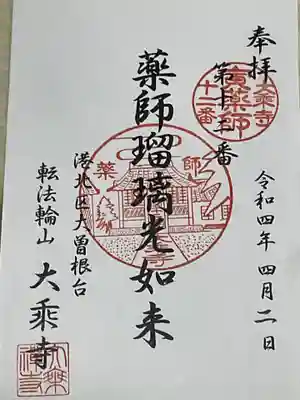 奉拝
第十二番
大乗寺
寅薬師
十二番
令和四年 四月二日
薬師瑠璃光如来
薬師
港北区大曽根台
転法輪山 大乗寺